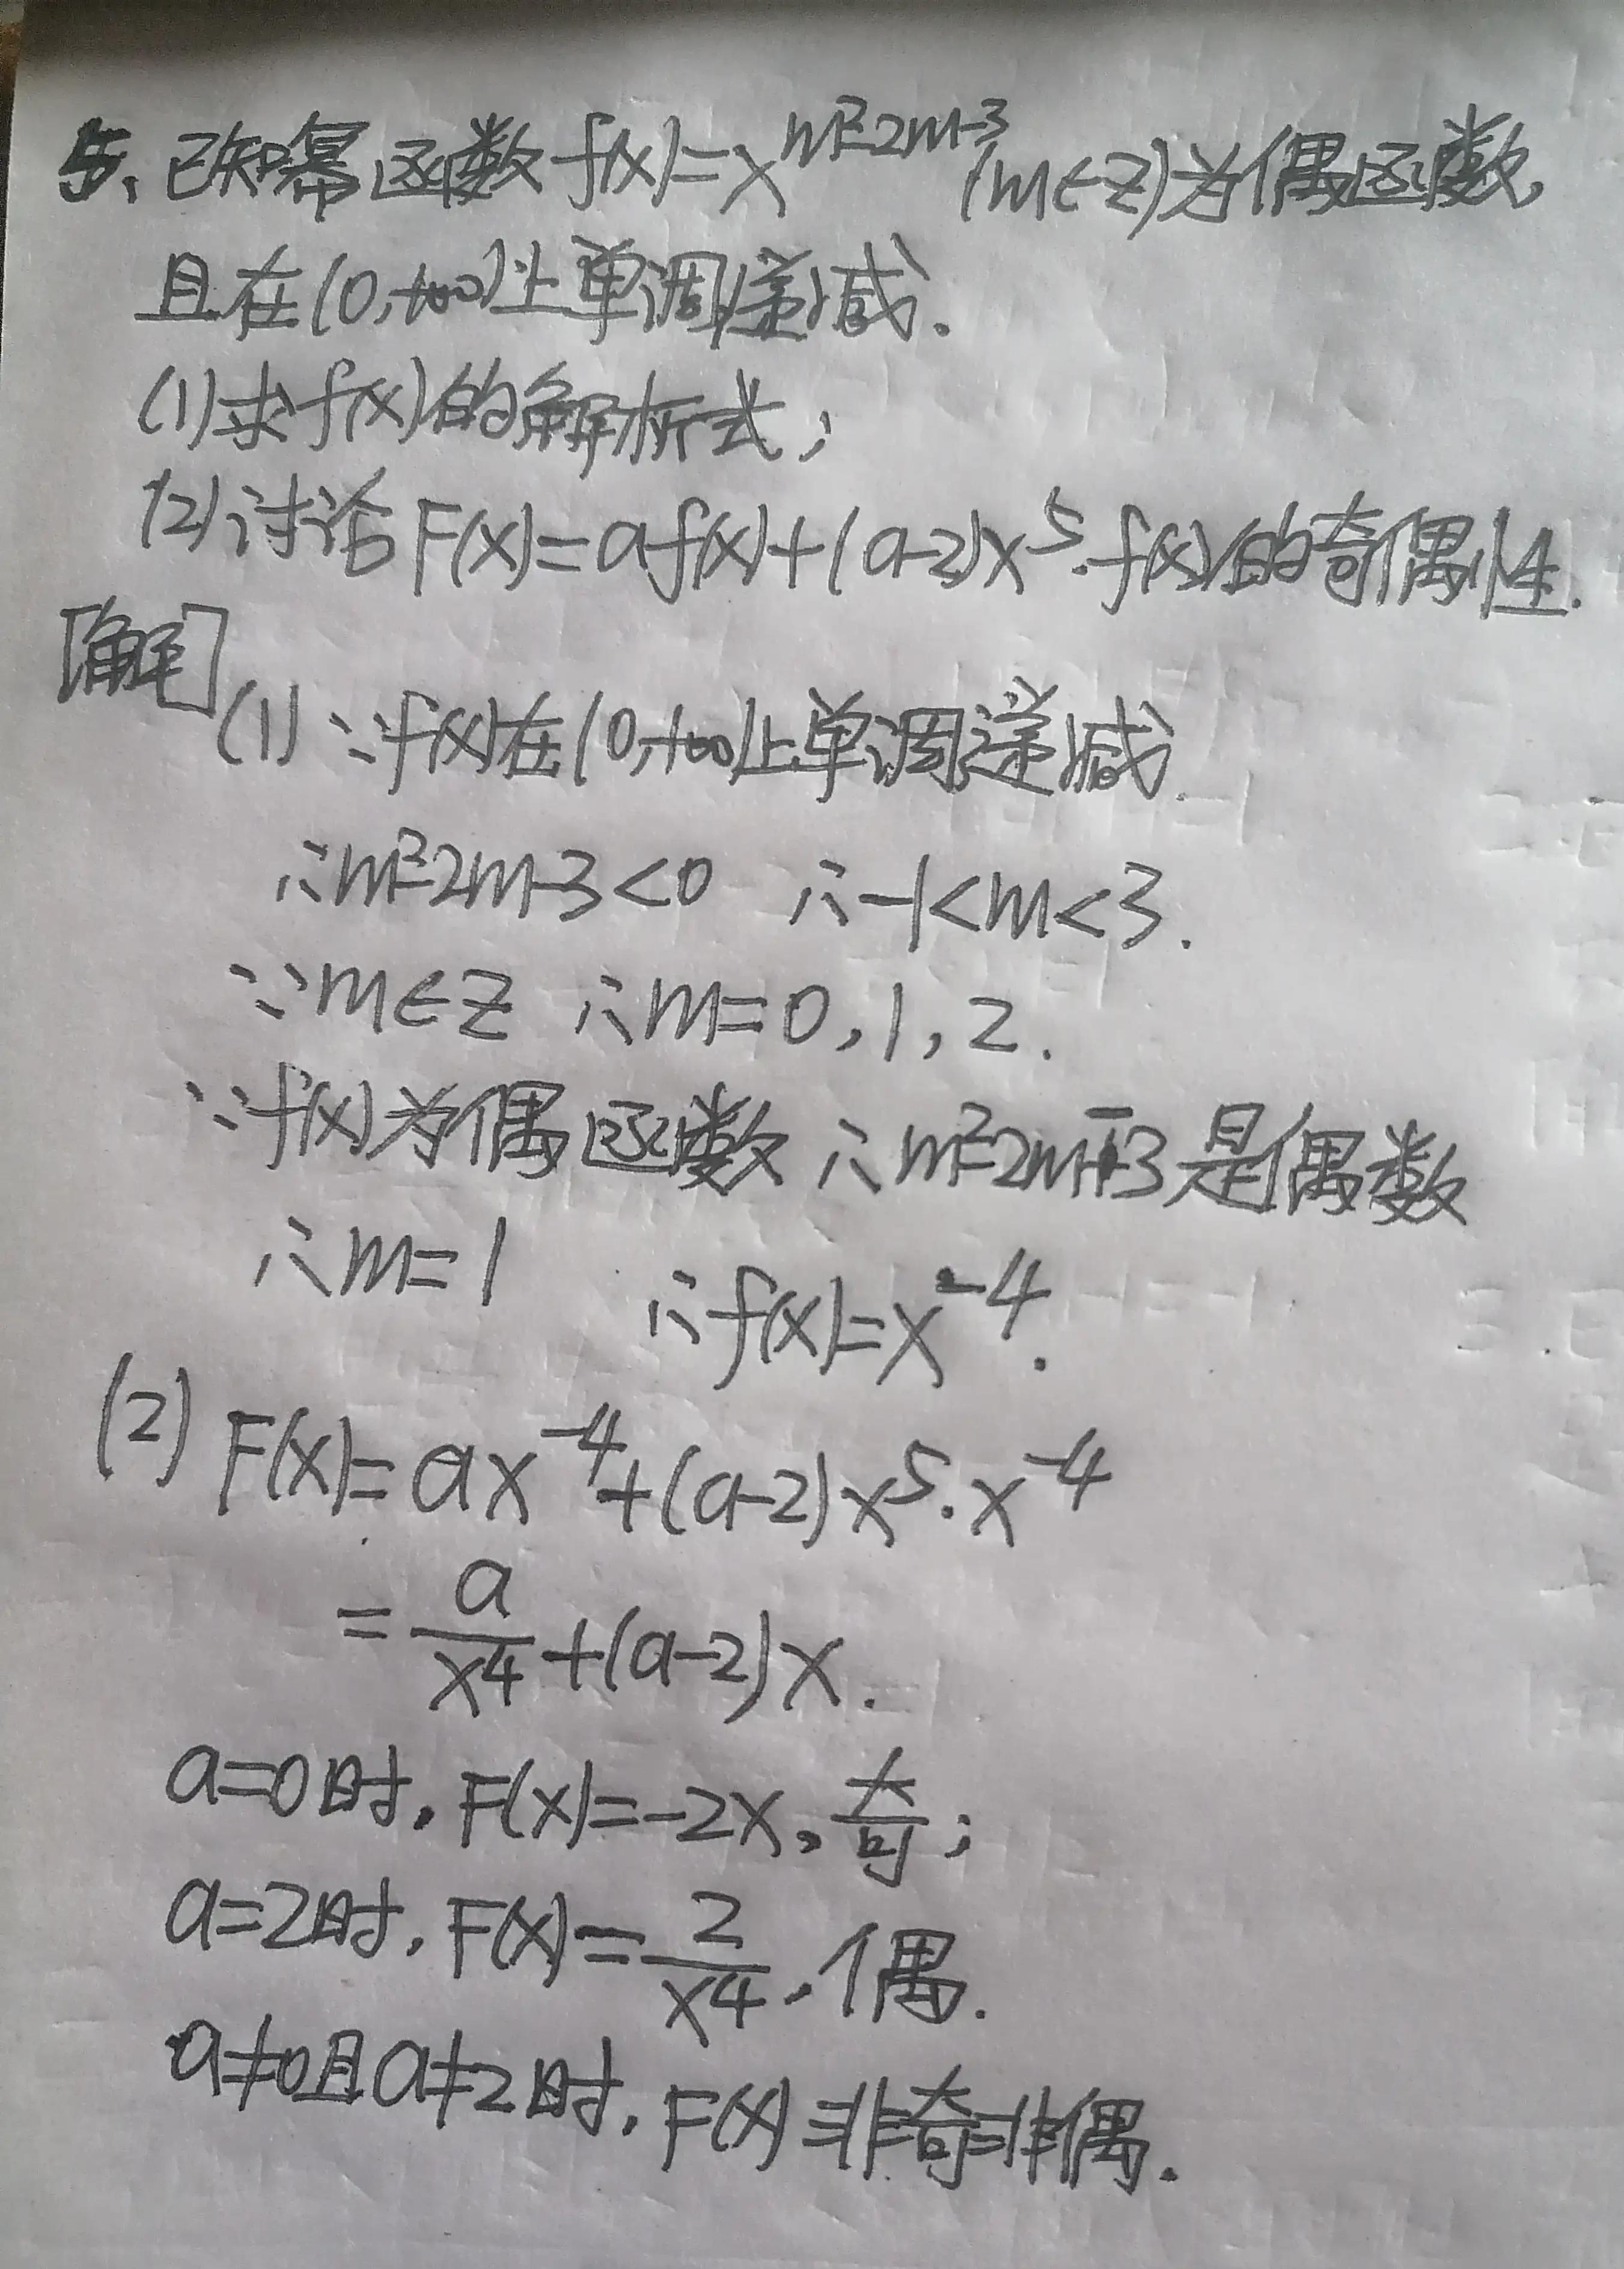 5、已知幂函数f(x)=x^{m²-2m-3}(m∈Z)为偶函数,
且在(0,+∞)上单调递减.
(1)求f(x)的解析式;
(2)讨论F(x)=af(x)+(a-2)x⁵·f(x)的奇偶性.
[解]
(1)∵f(x)在(0,+∞)上单调递减.
∴m²-2m-3<0 ∴-1<m<3.
∵m∈Z ∴m=0,1,2.
∵f(x)为偶函数 ∴m²-2m-3是偶数
∴m=1 ∴f(x)=x⁻⁴.
(2) F(x)=ax⁻⁴+(a-2)x⁵·x⁻⁴
=a/x⁴+(a-2)x.
a=0时,F(x)=-2x,奇;
a=2时,F(x)=2/x⁴,偶.
a≠0且a≠2时,F(x)非奇非偶.